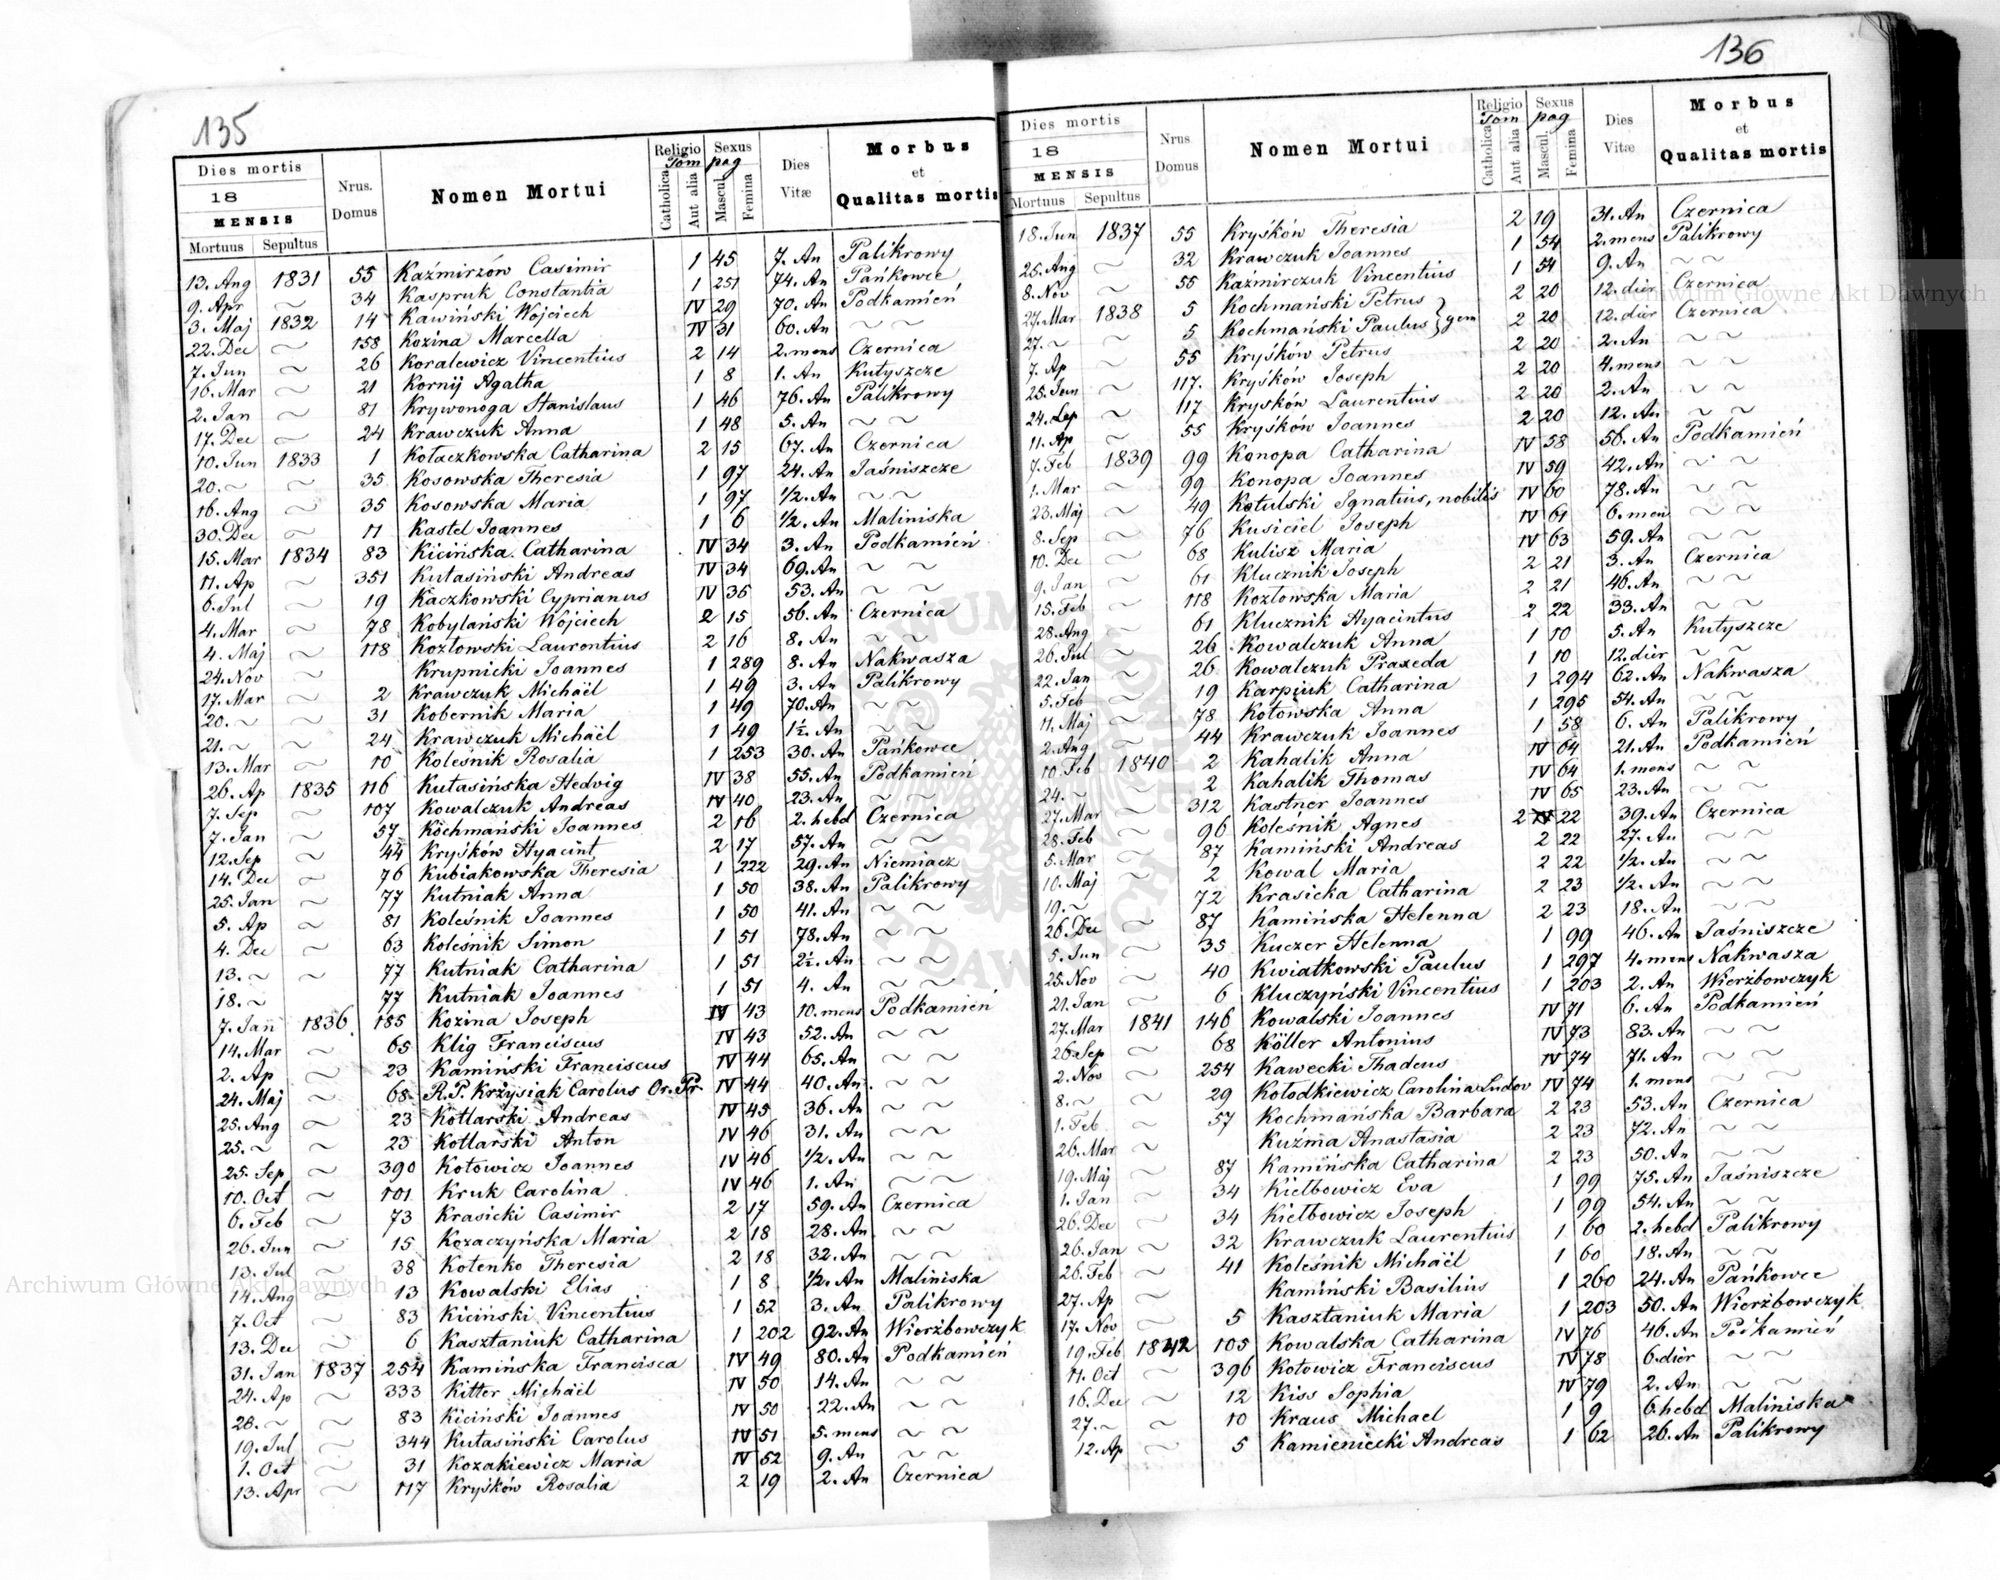 135
Dies mortis
18
MENSIS
Mortuus Sepultus
Nrus. Domus
Nomen Mortui
Religio
Tom
Catholica
Aut alia
Sexus
pag
Mascul.
Femina
Dies Vitæ
Morbus
et
Qualitas mortis
13. Aug 1831 55 Kaźmirzów Casimir 1 45 7. An Palikrowy
9. Apr ~ 34 Kaspruk Constantia 1 251 74. An Pańkowce
3. Maj 1832 14 Kawiński Wojciech IV 29 70. An Podkamień
22. Dec ~ 158 Kozina Marcella IV 31 60. An ~ ~
7. Jun ~ 26 Koralewicz Vincentius 2 14 2. mens Czernica
16. Mar ~ 21 Kornij Agatha 1 8 1. An Kutyszcze
2. Jan ~ 81 Krywonoga Stanislaus 1 46 76. An Palikrowy
17. Dec ~ 24 Krawczuk Anna 1 48 5. An ~ ~
10. Jun 1833 1 Kołaczkowska Catharina 2 15 67. An Czernica
20. ~ ~ 35 Kosowska Theresia 1 97 24. An Jaśniszcze
16. Aug ~ 35 Kosowska Maria 1 97 1/2. An ~ ~
30. Dec ~ 11 Kastel Joannes 1 6 1/2. An Maliniska
15. Mar 1834 83 Kicińska Catharina IV 34 3. An Podkamień
11. Ap ~ 351 Kutasiński Andreas IV 34 69. An ~ ~
6. Jul ~ 19 Kaczkowski Cyprianus IV 36 53. An ~ ~
4. Mar ~ 78 Kobylański Wojciech 2 15 56. An Czernica
4. Maj ~ 118 Kozłowski Laurentius 2 16 8. An ~ ~
24. Nov ~ Krupnicki Joannes 1 289 8. An Nakwasza
17. Mar ~ 2 Krawczuk Michaël 1 49 3. An Palikrowy
20. ~ ~ 31 Kobernik Maria 1 49 70. An ~ ~
21. ~ ~ 24 Krawczuk Michaël 1 49 1½. An ~ ~
13. Mar ~ 10 Koleśnik Rosalia 1 253 30. An Pańkowce
26. Ap 1835 116 Kutasińska Hedvig IV 38 55. An Podkamień
7. Sep ~ 107 Kowalczuk Andreas IV 40 23. An ~ ~
7. Jan ~ 57 Kochmański Joannes 2 16 2. hebd Czernica
12. Sep ~ 44 Kryśków Hyacint 2 17 57. An ~ ~
14. Dec ~ 76 Kubiakowska Theresia 1 222 29. An Niemiacz
25. Jan ~ 77 Kutniak Anna 1 50 38. An Palikrowy
5. Ap ~ 81 Koleśnik Joannes 1 50 41. An ~ ~
4. Dec ~ 63 Koleśnik Simon 1 51 78. An ~ ~
13. ~ ~ 77 Kutniak Catharina 1 51 2½. An ~ ~
18. ~ 77 Kutniak Joannes 1 51 4. An ~ ~
7. Jan 1836 185 Kozina Joseph IV 43 10. mens Podkamień
14. Mar ~ 65 Klig Franciscus IV 43 52. An ~ ~
2. Ap ~ 23 Kamiński Franciscus IV 44 65. An ~ ~
24. Maj ~ 68 R.P. Krzysiak Carolus Or. Pr. IV 44 40. An ~ ~
25. Aug ~ 23 Kotlarski Andreas IV 45 36. An ~ ~
25. ~ ~ 23 Kotlarski Anton IV 46 31. An ~ ~
25. Sep ~ 390 Kotowicz Joannes IV 46 1/2. An ~ ~
10. Oct ~ 101 Kruk Carolina IV 46 1. An ~ ~
6. Feb ~ 73 Krasicki Casimir 2 17 59. An Czernica
26. Jun ~ 15 Kozaczyńska Maria 2 18 28. An ~ ~
13. Jul ~ 38 Kotenko Theresia 2 18 32. An ~ ~
14. Aug ~ 13 Kowalski Elias 1 8 1/2. An Maliniska
7. Oct ~ 83 Kiciński Vincentius 1 52 3. An Palikrowy
13. Dec ~ 6 Kasztaniuk Catharina 1 202 92. An Wierzbowczyk
31. Jan 1837 254 Kamińska Francisca IV 49 80. An Podkamień
24. Ap ~ 333 Kitter Michaël IV 50 14. An ~ ~
28. ~ ~ 83 Kiciński Joannes IV 50 22. An ~ ~
19. Jul ~ 344 Kutasiński Carolus IV 51 5. mens ~ ~
1. Oct ~ 31 Kozakiewicz Maria IV 52 9. An ~ ~
13. Apr ~ 117 Kryśków Rosalia 2 19 2. An Czernica
136
Dies mortis
18
MENSIS
Mortuus Sepultus
Nrus Domus
Nomen Mortui
Religio
Tom
Catholica
Aut alia
Sexus
pag
Mascul.
Femina
Dies Vitæ
Morbus
et
Qualitas mortis
18. Jun 1837 55 Kryśków Theresia 2 19 31. An Czernica
25. Aug ~ 32 Krawczuk Joannes 1 54 2. mens Palikrowy
8. Nov ~ 55 Kaźmirczuk Vincentius 1 54 9. An ~ ~
27. Mar 1838 5 Kochmański Petrus } 2 20 12. dier Czernica
27. ~ ~ 5 Kochmański Paulus } gem 2 20 12. dier Czernica
7. Ap ~ 55 Kryśków Petrus 2 20 2. An ~ ~
25. Jun ~ 117. Kryśków Joseph 2 20 4. mens ~ ~
24. Sep ~ 117 Kryśków Laurentius 2 20 2. An ~ ~
11. Ap ~ 55 Kryśków Joannes 2 20 12. An ~ ~
7. Feb 1839 99 Konopa Catharina IV 58 56. An Podkamień
1. Mar ~ 99 Konopa Joannes IV 59 42. An ~ ~
23. Maj ~ 49 Kotulski Ignatius, nobilis IV 60 78. An ~ ~
8. Sep ~ 76 Kusiciel Joseph IV 61 6. men ~ ~
10. Dec ~ 68 Kulisz Maria IV 63 59. An ~ ~
9. Jan ~ 61 Klucznik Joseph 2 21 3. An Czernica
15. Feb ~ 118 Kozłowska Maria 2 21 46. An ~ ~
28. Aug ~ 61 Klucznik Hyacintus 2 22 33. An ~ ~
26. Jul ~ 26 Kowalczuk Anna 1 10 5. An Kutyszcze
22. Jan ~ 26 Kowalczuk Praxeda 1 10 12. dier ~ ~
5. Feb ~ 19 Karpiuk Catharina 1 294 62. An Nakwasza
11. Maj ~ 78 Kotowska Anna 1 295 54. An ~ ~
2. Aug ~ 44 Krawczuk Joannes 1 58 6. An Palikrowy
10. Feb 1840 2 Kahalik Anna IV 64 21. An Podkamień
24. ~ ~ 2 Kahalik Thomas IV 64 1. mens ~ ~
27. Mar ~ 312 Kastner Joannes IV 65 23. An ~ ~
28. Feb ~ 96 Koleśnik Agnes 2 22 39. An Czernica
5. Mar ~ 87 Kamiński Andreas 2 22 27. An ~ ~
10. Maj ~ 2 Kowal Maria 2 22 1/2. An ~ ~
19. ~ ~ 72 Krasicka Catharina 2 23 1/2. An ~ ~
26. Dec ~ 87 Kamińska Helenna 2 23 18. An ~ ~
5. Jun ~ 35 Kuczer Helenna 1 99 46. An Jaśniszcze
25. Nov ~ 40 Kwiatkowski Paulus 1 297 4. mens Nakwasza
21. Jan ~ 6 Kluczyński Vincentius 1 203 2. An Wierzbowczyk
27. Mar 1841 146 Kowalski Joannes IV 71 6. An Podkamień
26. Sep ~ 68 Köller Antonius IV 73 83. An ~ ~
2. Nov ~ 254 Kawecki Thadeus IV 74 71. An ~ ~
8. ~ ~ 29 Kołodkiewicz Carolina Ludov IV 74 1. mens ~ ~
1. Feb ~ 57 Kochmańska Barbara 2 23 53. An Czernica
26. Mar ~ Kuźma Anastasia 2 23 72. An ~ ~
19. Maj ~ 87 Kamińska Catharina 2 23 50. An ~ ~
1. Jan ~ 34 Kiełbowicz Eva 1 99 75. An Jaśniszcze
26. Dec ~ 34 Kiełbowicz Joseph 1 99 54. An ~ ~
26. Jan ~ 32 Krawczuk Laurentius 1 60 2. hebd Palikrowy
26. Feb ~ 41 Koleśnik Michaël 1 60 18. An ~ ~
27. Ap ~ Kamiński Basilius 1 260 24. An Pańkowce
17. Nov ~ 5 Kasztaniuk Maria 1 203 50. An Wierzbowczyk
19. Feb 1842 105 Kowalska Catharina IV 76 46. An Podkamień
11. Oct ~ 396 Kotowicz Franciscus IV 78 6. dier ~ ~
16. Dec ~ 12 Kiss Sophia IV 79 2. An ~ ~
27. ~ ~ 10 Kraus Michael 1 9 6. hebd Maliniska
12. Ap ~ 5 Kamieniecki Andreas 1 62 26. An Palikrowy
Archiwum Główne Akt Dawnych
Archiwum Główne Akt Dawnych